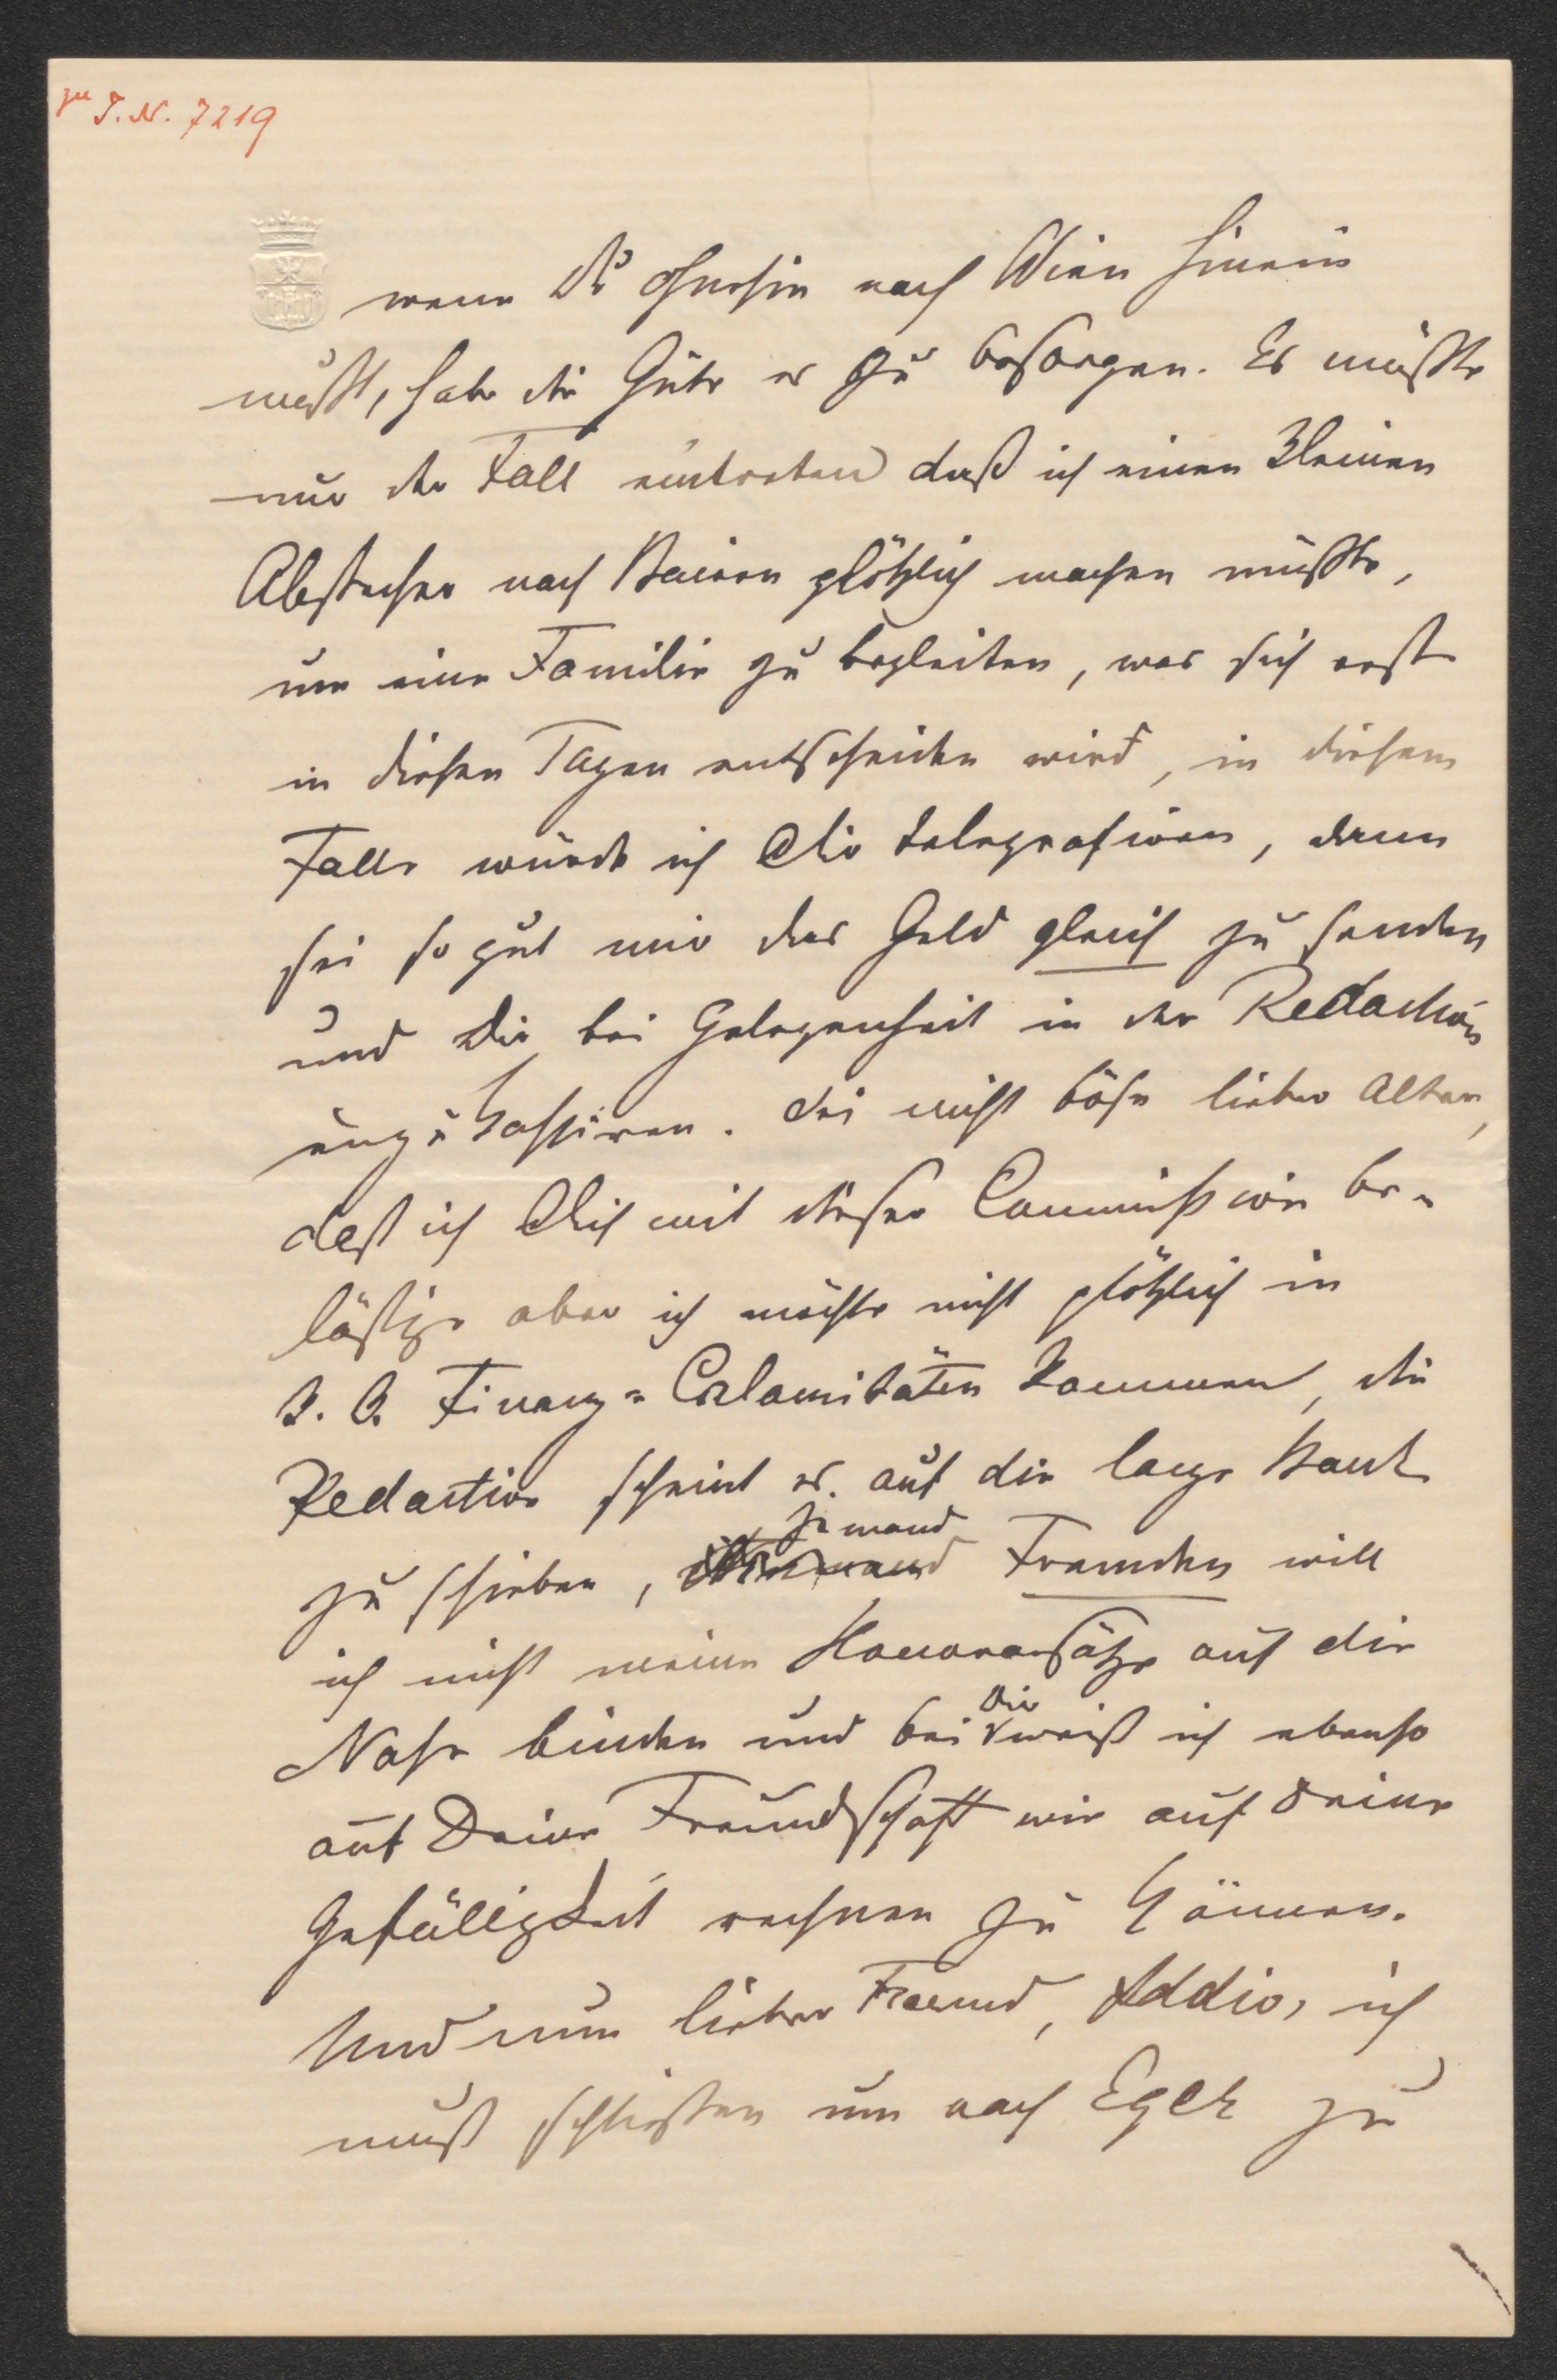 zu I.N. 7219
wenn Du ohnehin nach Wien hinein
mußt, habe die Güte es zu besorgen. Es müßte
nur der Fall eintreten daß ich einen kleinen
Abstecher nach Baiern plötzlich machen müßte,
um eine Familie zu begleiten, was sich erst
in diesen Tagen entscheiden wird, in diesem
Falle würde ich Dir telegrafiren, dann
sei so gut mir das Geld gleich zu senden
und Dir bei Gelegenheit in der Redaction
einzukassiren. Sei nicht böse lieber Alter,
daß ich Dich mit dieser Commission be-
lästige aber ich möchte nicht plötzlich in
Finanz-Calamitäten kommen, die
Redaction scheint es auf die lange Bank
zu schieben, Jemand Fremden will
ich nicht meine Honorarsätze auf die
Nase binden und bei Dir weiß ich ebenso
auf Deine Freundschaft wie auf Deine
Gefälligkeit rechnen zu können.
Und nun lieber Freund, Addio, ich
muß schließen um nach Eger zu